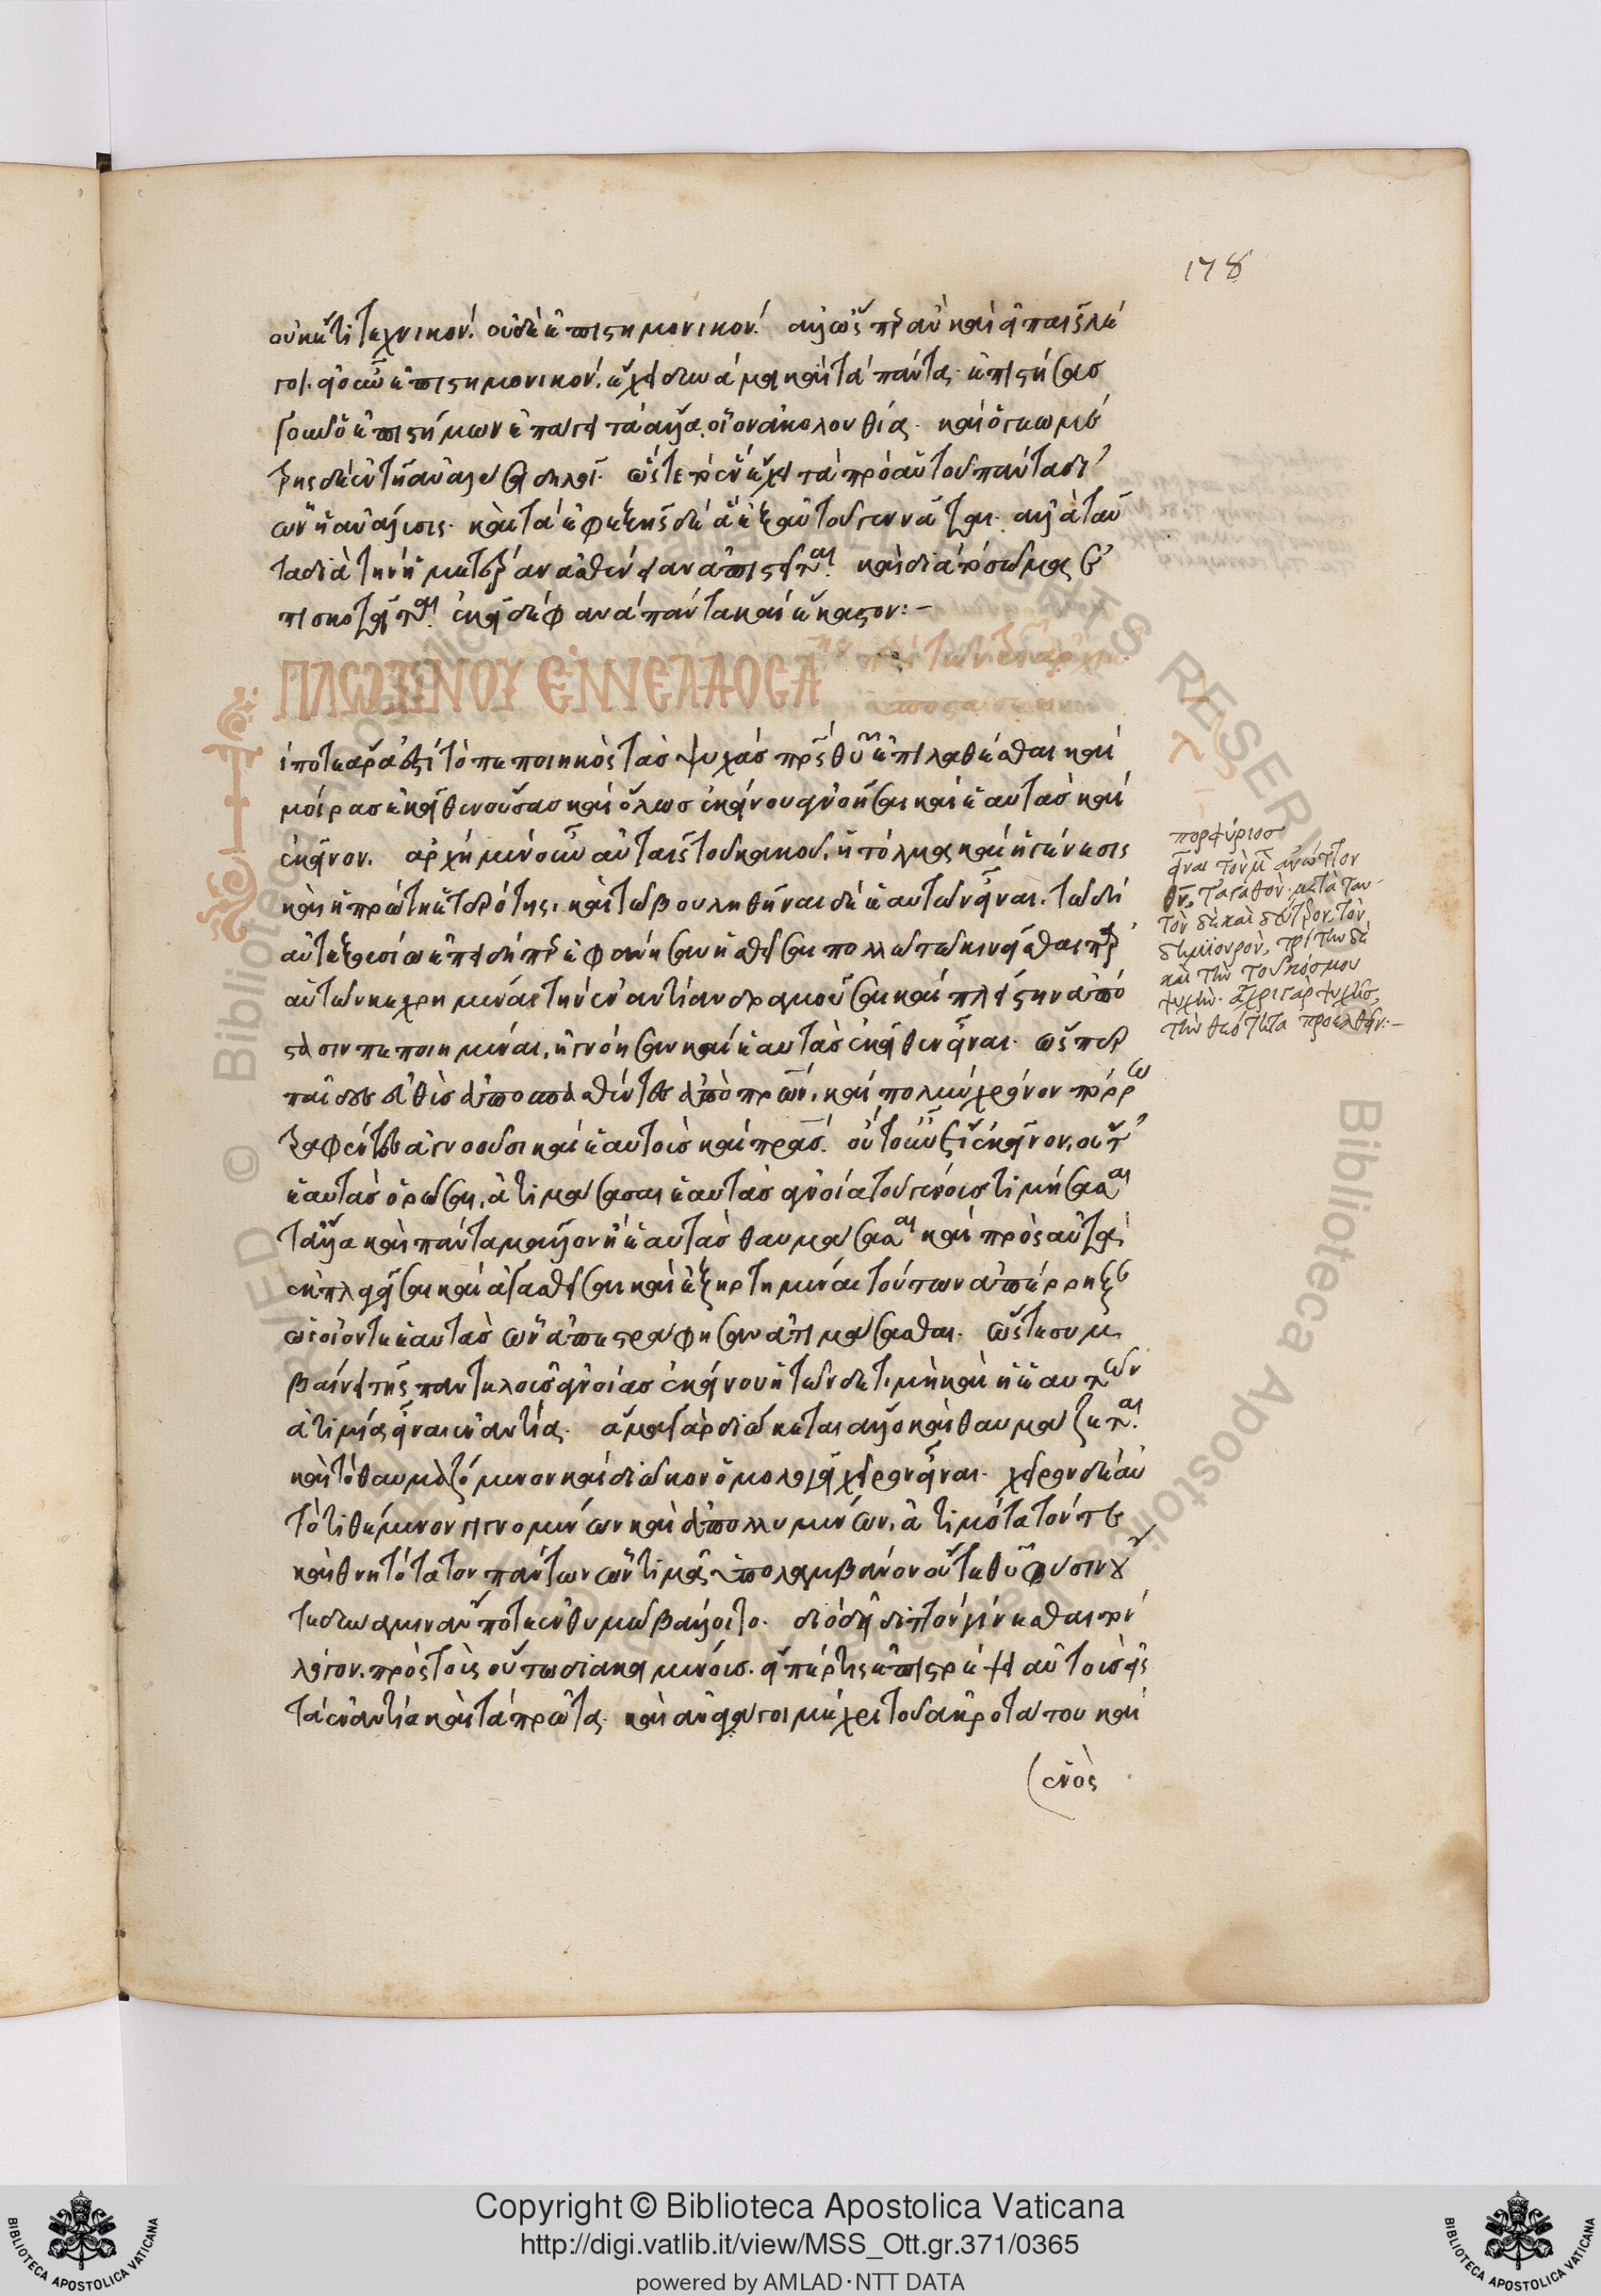 178
οὐκέτι τεχνικὸν οὐδὲ ἐπιστημονικὸν. ἀλλ' ὥσπερ ἂν καὶ εἰ παῖς λέ
γοι. εἰ οὖν ἐπιστημονικὸν, ἔχει δυνάμει καὶ τὰ πάντα. ἐπιστήσας
γοῦν ὁ ἐπιστήμων ἐπάγει τὰ ἄλλα οἷον ἀκολουθίᾳ. καὶ ὁ γεωμέ
τρης δὲ ἐν τῇ ἀναλύσει δηλοῖ. ὡς τὸ ἓν ἔχει τὰ πρὸ αὐτοῦ πάντα δι'
ὧν ἡ ἀνάλυσις. καὶ τὰ ἐφεξῆς δὲ ἃ ἐξ αὐτοῦ γεννᾶται. ἀλλὰ ταῦ
τα διὰ τὴν ἡμετέραν ἀσθένειαν ἀπιστεῖται. καὶ διὰ τὸ σῶμα ἐ
πισκοτεῖται. ἐκεῖ δὲ φανὰ πάντα καὶ ἕκαστον:–
ΠΛΩΤΙΝΟΥ ΕΝΝΕΑΔΟΣ
περὶ τῶν τριῶν ἀρχικῶν
ὑποστάσεων
ί ποτε ἄρα ἐστὶ τὸ πεποιηκὸς τὰς ψυχὰς πατρὸς θεοῦ ἐπιλαθέσθαι καὶ
μοίρας ἐκεῖθεν οὔσας καὶ ὅλως ἐκείνου ἀγνοῆσαι καὶ ἑαυτὰς καὶ
ἐκεῖνον. ἀρχὴ μὲν οὖν αὐταῖς τοῦ κακοῦ, ἡ τόλμα καὶ ἡ γένεσις
καὶ ἡ πρώτη ἑτερότης. καὶ τὸ βουληθῆναι δὲ ἑαυτῶν εἶναι. τῷ δὴ
αὐτεξουσίῳ ἐπειδήπερ ἐφάνησαν ἡσθεῖσαι πολλῷ τῷ κινεῖσθαι παρ'
αὐτῶν κεχρημέναι τὴν ἐναντίαν δραμοῦσαι καὶ πλείστην ἀπό
στασιν πεποιημέναι, ἠγνόησαν καὶ ἑαυτὰς ἐκεῖθεν εἶναι. ὥσπερ
παῖδες εὐθὺς ἀποσπασθέντες ἀπὸ πατέρων, καὶ πολὺν χρόνον πόρρω
τραφέντες ἀγνοοῦσι καὶ ἑαυτοὺς καὶ πατέρας. οὔτ' οὖν ἔτι ἐκεῖνον, οὔτ'
ἑαυτὰς ὁρῶσαι, ἀτιμάσασαι ἑαυτὰς ἀγνοίᾳ τοῦ γένους τιμήσασαι
τἆλλα καὶ πάντα μᾶλλον ἢ ἑαυτὰς θαυμάσασαι καὶ πρὸς αὐτὰ
ἐκπλαγεῖσαι καὶ ἀγασθεῖσαι καὶ ἐξηρτημέναι τούτων ἀπέρρηξαν
ὡς οἷόν τε ἑαυτὰς ὧν ἀπεστράφησαν ἀτιμάσασαι. ὥστε συμ
βαίνει τῆς παντελοῦς ἀγνοίας ἐκείνου ἡ τῶνδε τιμὴ καὶ ἡ ἑαυτῶν
ἀτιμία εἶναι αἰτία. ἅμα γὰρ διώκεται ἄλλο καὶ θαυμάζεται.
καὶ τὸ θαυμάζον καὶ διῶκον ὁμολογεῖ χεῖρον εἶναι. χεῖρον δὲ αὑ
τὸ τιθέμενον γιγνομένων καὶ ἀπολλυμένων, ἀτιμότατόν τε
καὶ θνητότατον πάντων ὧν τιμᾷ ὑπολαμβάνον οὔτε θεοῦ φύσιν οὔ
τε δύναμιν ἄν ποτε ἐν θυμῷ βάλοιτο. διὸ δεῖ διττὸν γίγνεσθαι τὸν
λόγον. πρὸς τοὺς οὕτω διακειμένους. εἴπερ τις ἐπιστρέψει αὐτοὺς εἰς
τὰ ἐναντία καὶ τὰ πρῶτα. καὶ ἀνάγοι μέχρι τοῦ ἀκροτάτου καὶ
ἑνὸς
πορφύριος
εἶναι τὸν μὲν ἀνώτατον
θεὸν, τἀγαθόν· μετὰ ταυ-
τὸν δὲ καὶ δεύτερον, τὸν
δημιουργὸν, τρίτην δὲ
καὶ τὴν τοῦ κόσμου
ψυχήν· ἄχρι γὰρ ψυχῆς,
τὴν θεότητα προελθεῖν:–
Copyright © Biblioteca Apostolica Vaticana
http://digi.vatlib.it/view/MSS_Ott.gr.371/0365
powered by AMLAD·NTT DATA
BIBLIOTECA APOSTOLICA VATICANA
BIBLIOTECA APOSTOLICA VATICANA